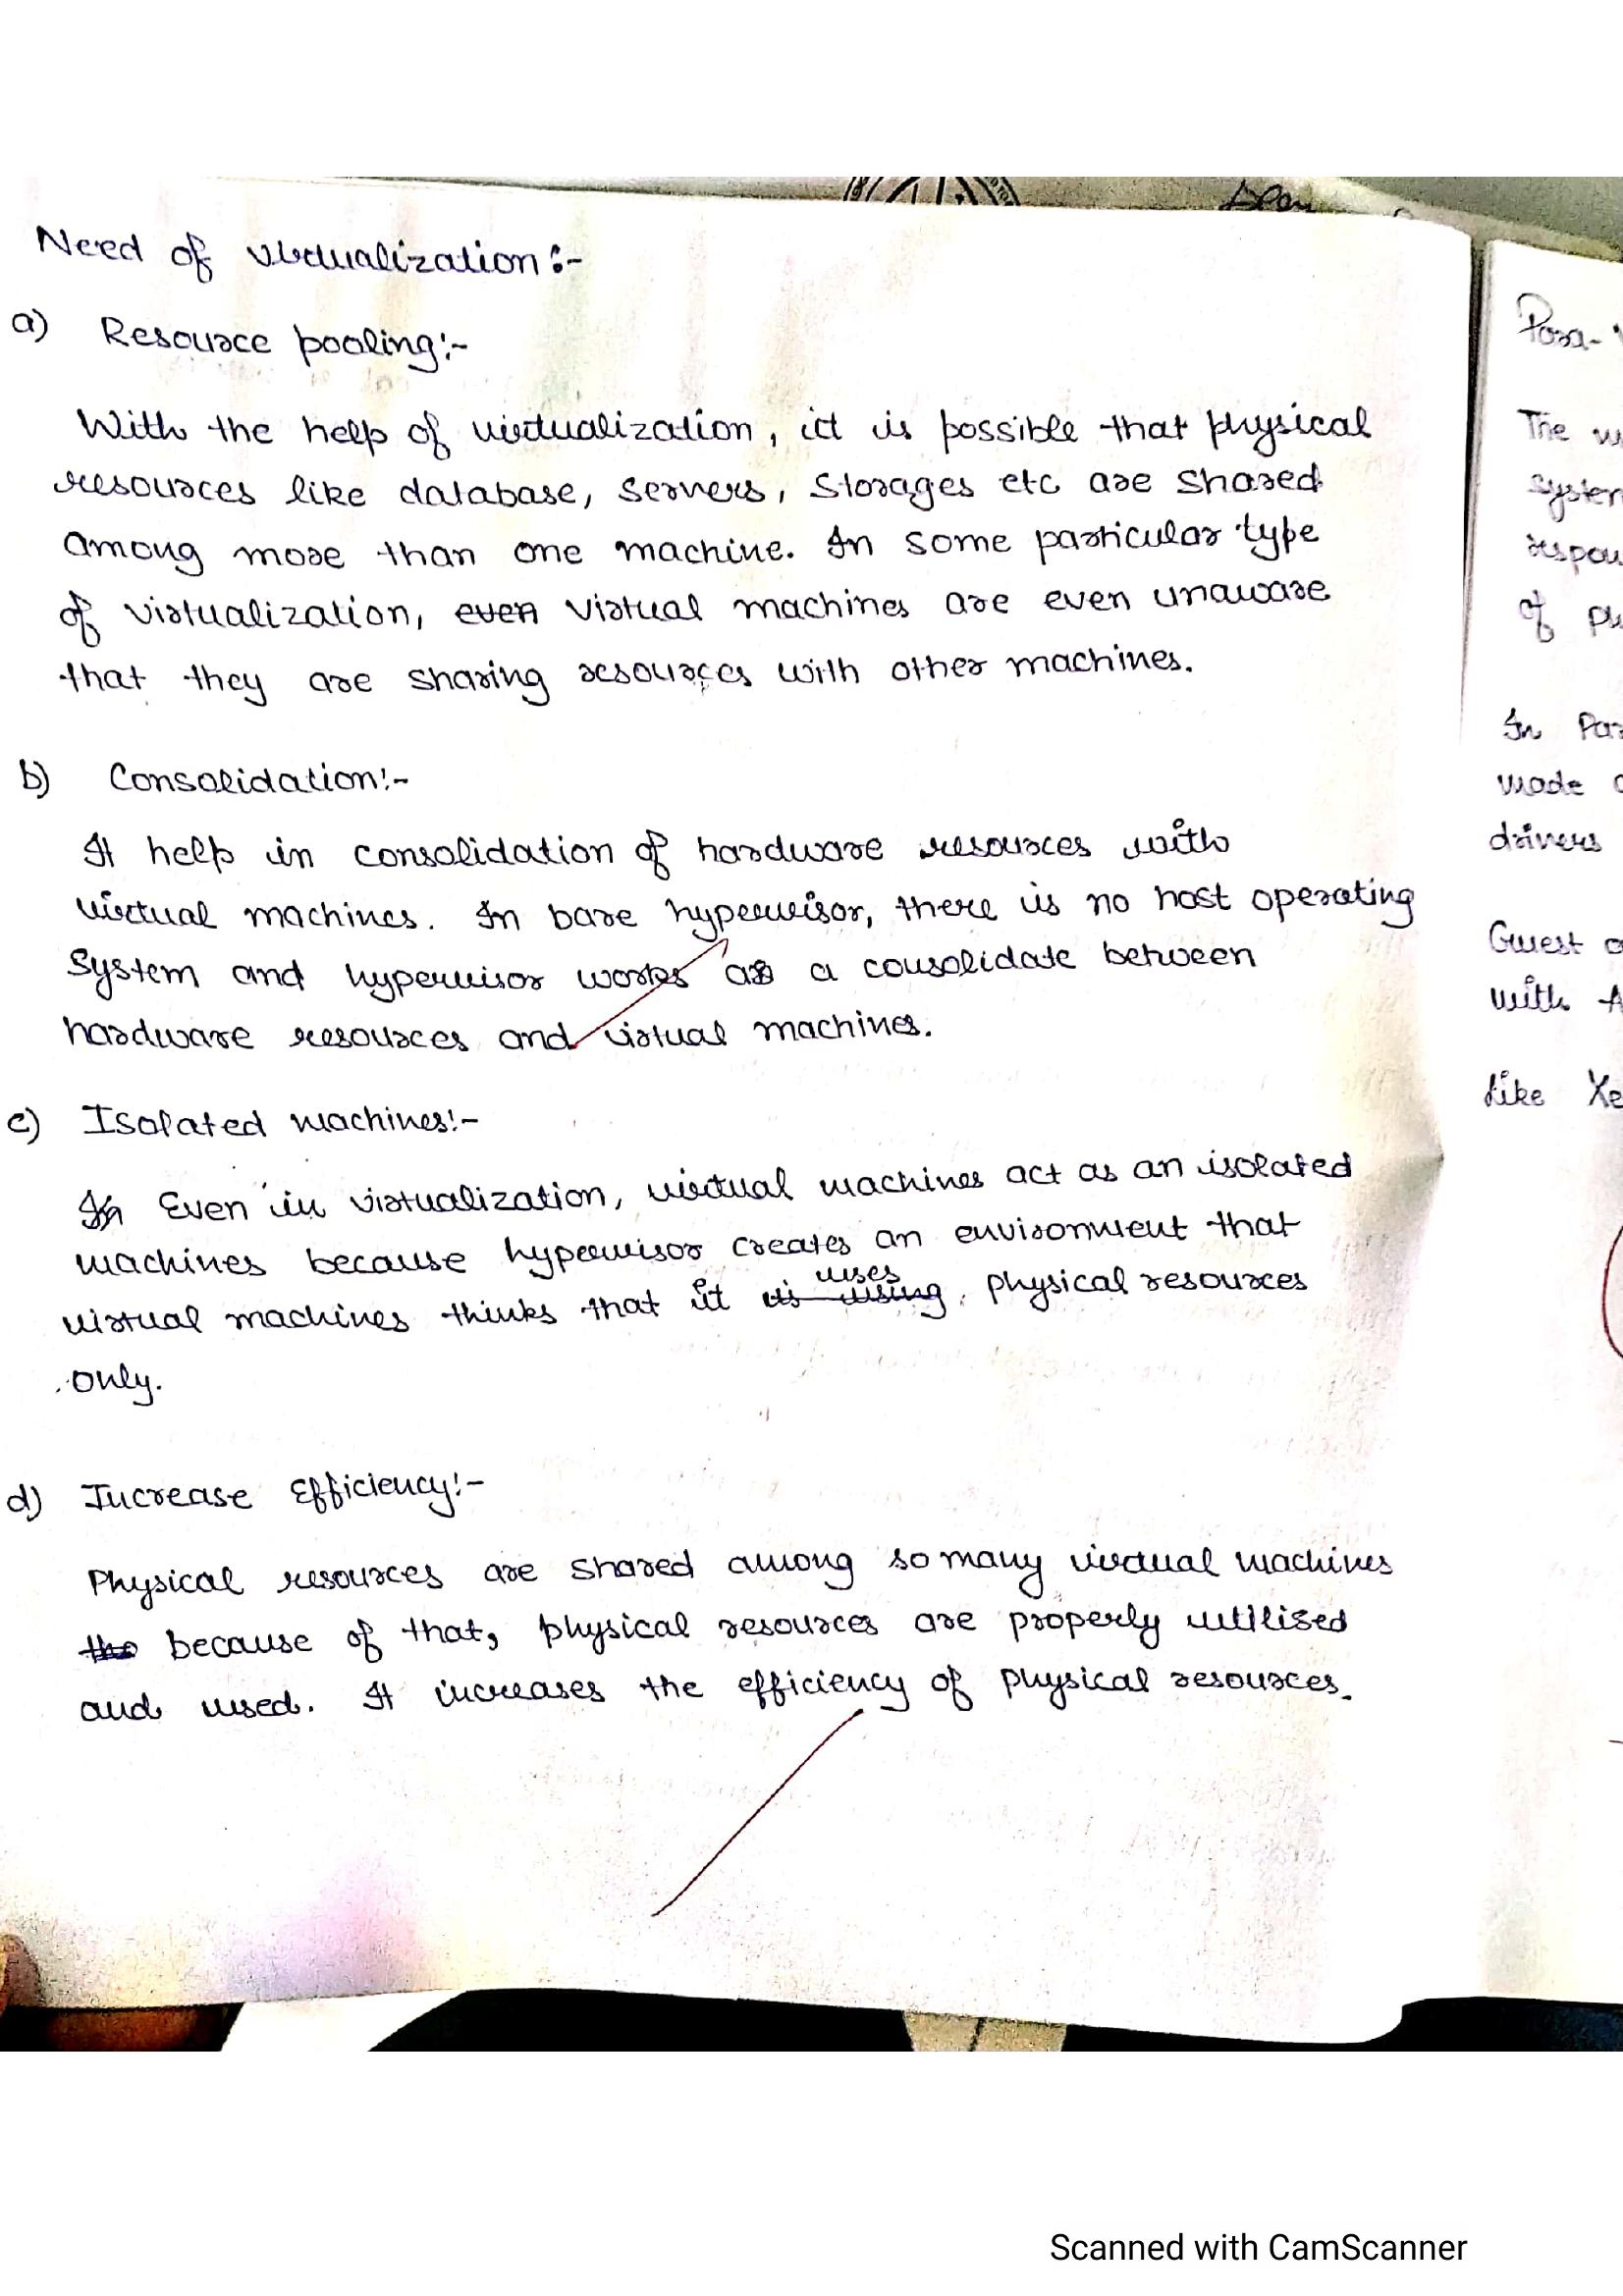 Need of virtualization:-
a) Resource pooling:-
With the help of virtualization, it is possible that physical
resources like database, servers, storages etc are shared
among more than one machine. In some particular type
of virtualization, even virtual machines are even unaware
that they are sharing resources with other machines.
b) Consolidation:-
It help in consolidation of hardware resources with
virtual machines. In bare hypervisor, there is no host operating
system and hypervisor works as a consolidate between
hardware resources and virtual machines.
c) Isolated machines:-
In Even in virtualization, virtual machines act as an isolated
machines because hypervisor creates an environment that
uses
virtual machines thinks that it is using physical resources
only.
d) Increase Efficiency:-
Physical resources are shared among so many virtual machines
the because of that, physical resources are properly utilised
and used. It increases the efficiency of physical resources.
Para-
The
system
of
In Par
made
drivers
Guest
with
Like Xe
Scanned with CamScanner